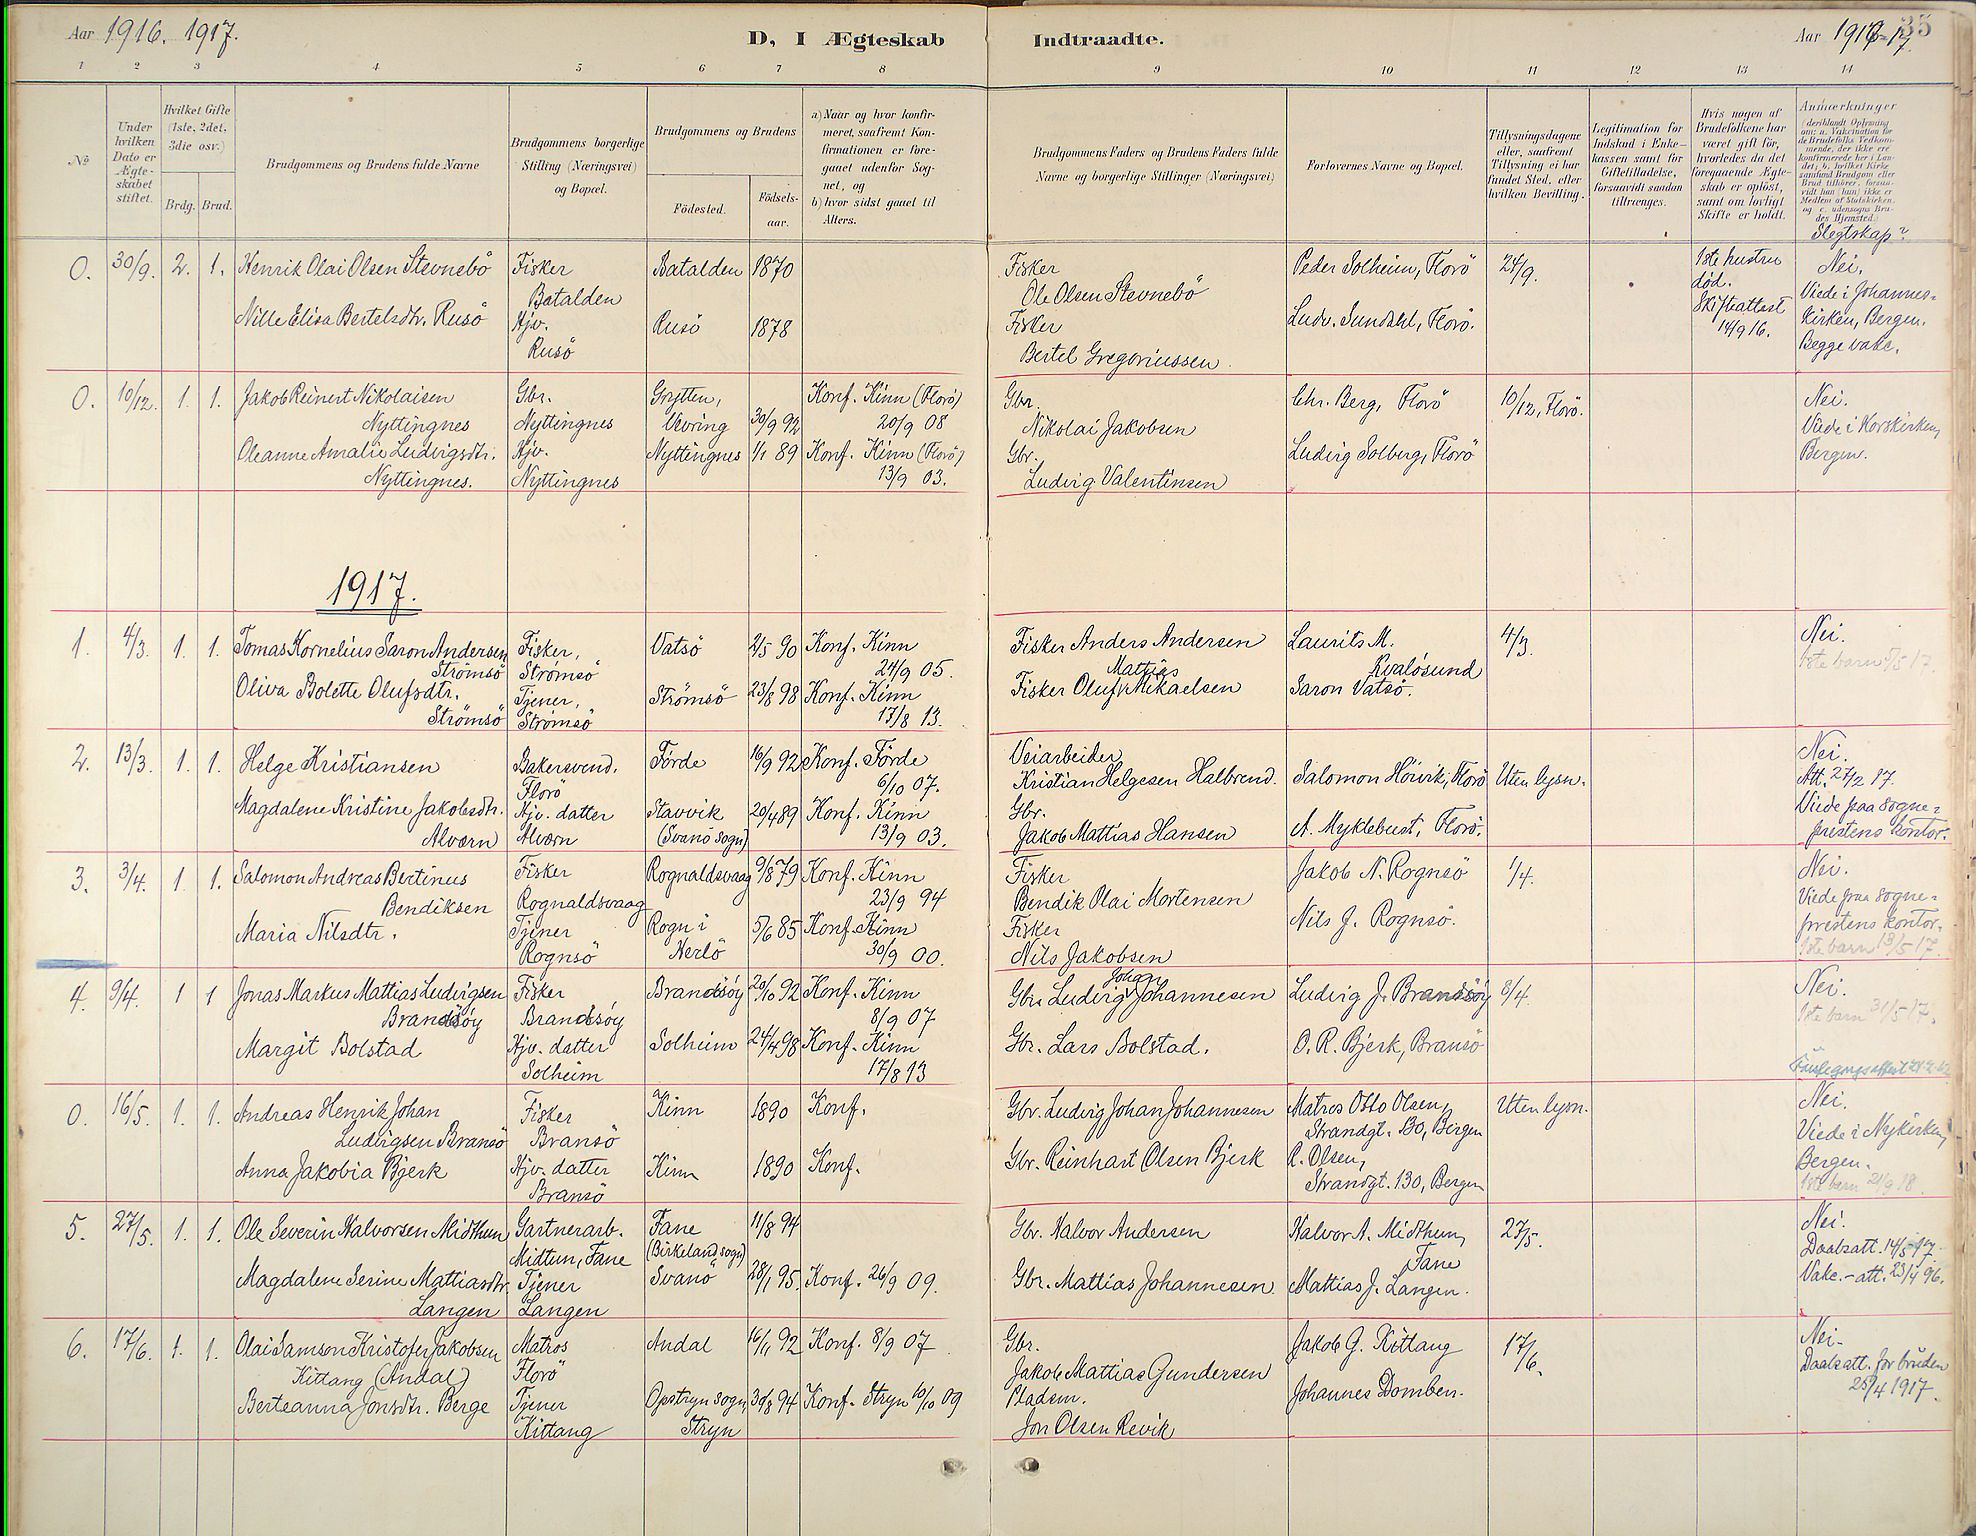 Aar 1916. 1917.
D, I Ægteskab
Indtraadte.
Aar 1916-17.
35
1 2 3 4 5 6 7 8 9 10 11 12 13 14
No
Under hvilken Dato er Ægteskabet stiftet.
Hvilket Gifte (1ste, 2det, 3die osv.)
Brdg. Brud.
Brudgommens og Brudens fulde Navne
Brudgommens borgerlige Stilling (Næringsvei) og Bopæl.
Brudgommens og Brudens
Fødested.
Fødselsaar.
a) Naar og hvor konfirmeret, saafremt Konfirmationen er foregaaet udenfor Sognet, og
b) hvor sidst gaaet til Alters.
Brudgommens Faders og Brudens Faders fulde Navne og borgerlige Stillinger (Næringsvei)
Forlovernes Navne og Bopæl.
Tillysningsdagene eller, saafremt Tillysning ei har fundet Sted, efter hvilken Bevilling.
Legitimation for Indskud i Enkekassen samt for Giftetilladelse, forsaavidt saadan tiltrænges.
Hvis nogen af Brudefolkene har været gift før, hvorledes da det foregaaende Ægteskab er opløst, samt om lovligt Skifte er holdt.
Anmærkninger
Slegtskap?
0. 30/9. 2. 1. Henrik Olai Olsen Stevnebö
Fisker
Batalden
Batalden 1870
Fisker
Ole Olsen Stevnebö
Peder Solheim, Florö
24/9.
1ste hustru
død.
Skifteattest
14/9 16.
Nei.
Viede i Johannes-
kirken, Bergen.
Begge vakc.
Nille Elisa Bertelsdtr. Rusö
Hjv.
Rusö
Rusö 1878
Fisker
Bertel Gregoriussen
Ludv. Sundahl, Florö.
0. 10/12. 1. 1. Jakob Reinert Nikolaisen
Nyttingnes
Gbr.
Nyttingnes
Grytten,
Vevring
30/9 92
Konf. Kinn (Florö)
20/9 08
Gbr.
Nikolai Jakobsen
Chr. Berg, Florö
10/12, Florö.
Nei.
Viede i Korskirken,
Bergen.
Oleanne Amalie Ludvigsdtr.
Nyttingnes.
Hjv.
Nyttingnes
Nyttingnes 1/1 89
Konf. Kinn (Florö)
13/9 03.
Gbr.
Ludvig Valentinsen
Ludvig Solberg, Florö
1917.
1. 4/3. 1. 1. Tomas Kornelius Saron Andersen
Strömsö
Fisker,
Strömsö
Vatsö 2/5 90
Konf. Kinn
24/9 05.
Fisker Anders Andersen
Laurits M.
Kvalösund
4/3.
Nei.
1ste barn 5/5 17.
Oliva Bolette Olufsdtr.
Strömsö
Tjener,
Strömsö
Strömsö 23/8 98
Konf. Kinn
17/8 13.
Mattias
Fisker Oluf Mikaelsen
Saron Vatsö.
2. 13/3. 1. 1. Helge Kristiansen
Bakersvend.
Florö
Förde 16/9 92
Konf. Förde
6/10 07.
Veiarbeider
Kristian Helgesen Halbrend.
Salomon Hörvik, Florö
Uten lysn.
Nei.
Att. 27/2 17.
Viede paa sogne-
prestens kontor.
Magdalene Kristine Jakobsdtr.
Alværn
Hjv. datter
Alværn
Stavvik
(Svanö sogn)
20/4 89
Konf. Kinn
13/9 03.
Gbr.
Jakob Mattias Hansen
A. Myklebust, Florö.
3. 3/4. 1. 1. Salomon Andreas Bertinus
Bendiksen
Fisker
Rognaldsvaag
Rognaldsvaag 9/8 79
Konf. Kinn
23/9 94
Fisker
Bendik Olai Mortensen
Jakob N. Rognsö
1/4.
Nei.
Viede paa sogne-
prestens kontor.
1ste barn 13/5 17.
Maria Nilsdtr.
Tjener
Rognsö
Rogn i
Herlö
5/6 85
Konf. Kinn
30/9 00.
Fisker
Nils Jakobsen
Nils J. Rognsö.
4. 9/4. 1 1 Jonas Markus Mattias Ludvigsen
Brandsöy
Fisker
Brandsöy
Brandsöy 20/10 92
Konf. Kinn
8/9 07
Johan
Gbr. Ludvig Johannesen
Ludvig J. Brandsöy
8/4.
Nei.
1ste barn 31/5 17.
Margit Bolstad
Hjv. datter
Solheim
Solheim 24/4 98
Konf. Kinn
17/8 13
Gbr. Lars Bolstad.
O. R. Bjerk, Bransö
0. 16/5. 1. 1. Andreas Henrik Johan
Ludvigsen Bransö
Fisker
Bransö
Kinn 1890 Konf.
Gbr. Ludvig Johan Johannesen
Matros Otto Olsen,
Strandgt. 130, Bergen
Uten lysn.
Nei.
Viede i Nykirken,
Bergen.
1ste barn 21/9 18.
Anna Jakobia Bjerk
Hjv. datter
Bransö
Kinn 1890 Konf.
Gbr. Reinhart Olsen Bjerk
R. Olsen,
Strandgt. 130, Bergen
5. 27/5. 1. 1. Ole Severin Halvorsen Midthun
Gartnerarb.
Midtun, Fane
Fane
(Birkeland sogn)
11/8 94
Gbr. Halvor Andersen
Halvor A. Midthun,
Fane
27/5.
Nei.
Daabsatt. 14/5 17.
Vakc.-att. 23/4 96.
Magdalene Serine Mattiasdtr.
Langen
Tjener
Langen
Svanö 28/1 95.
Konf. 26/9 09.
Gbr. Mattias Johannesen
Mattias J. Langen.
6. 17/6. 1. 1. Olai Samson Kristofer Jakobsen
Kittang (Andal)
Matros
Florö
Andal 16/11 92
Konf. 8/9 07
Gbr.
Jakob Mattias Gundersen
Jakob G. Kittang
17/6.
Nei.
Daabsatt. for bruden
25/4 1917.
Berteanna Jonsdtr. Berge
Tjener
Kittang
Opstryn sogn,
Stryn
30/8 94
Konf. Stryn 10/10 09
Pladsm.
Jon Olsen Revik
Johannes Domben.